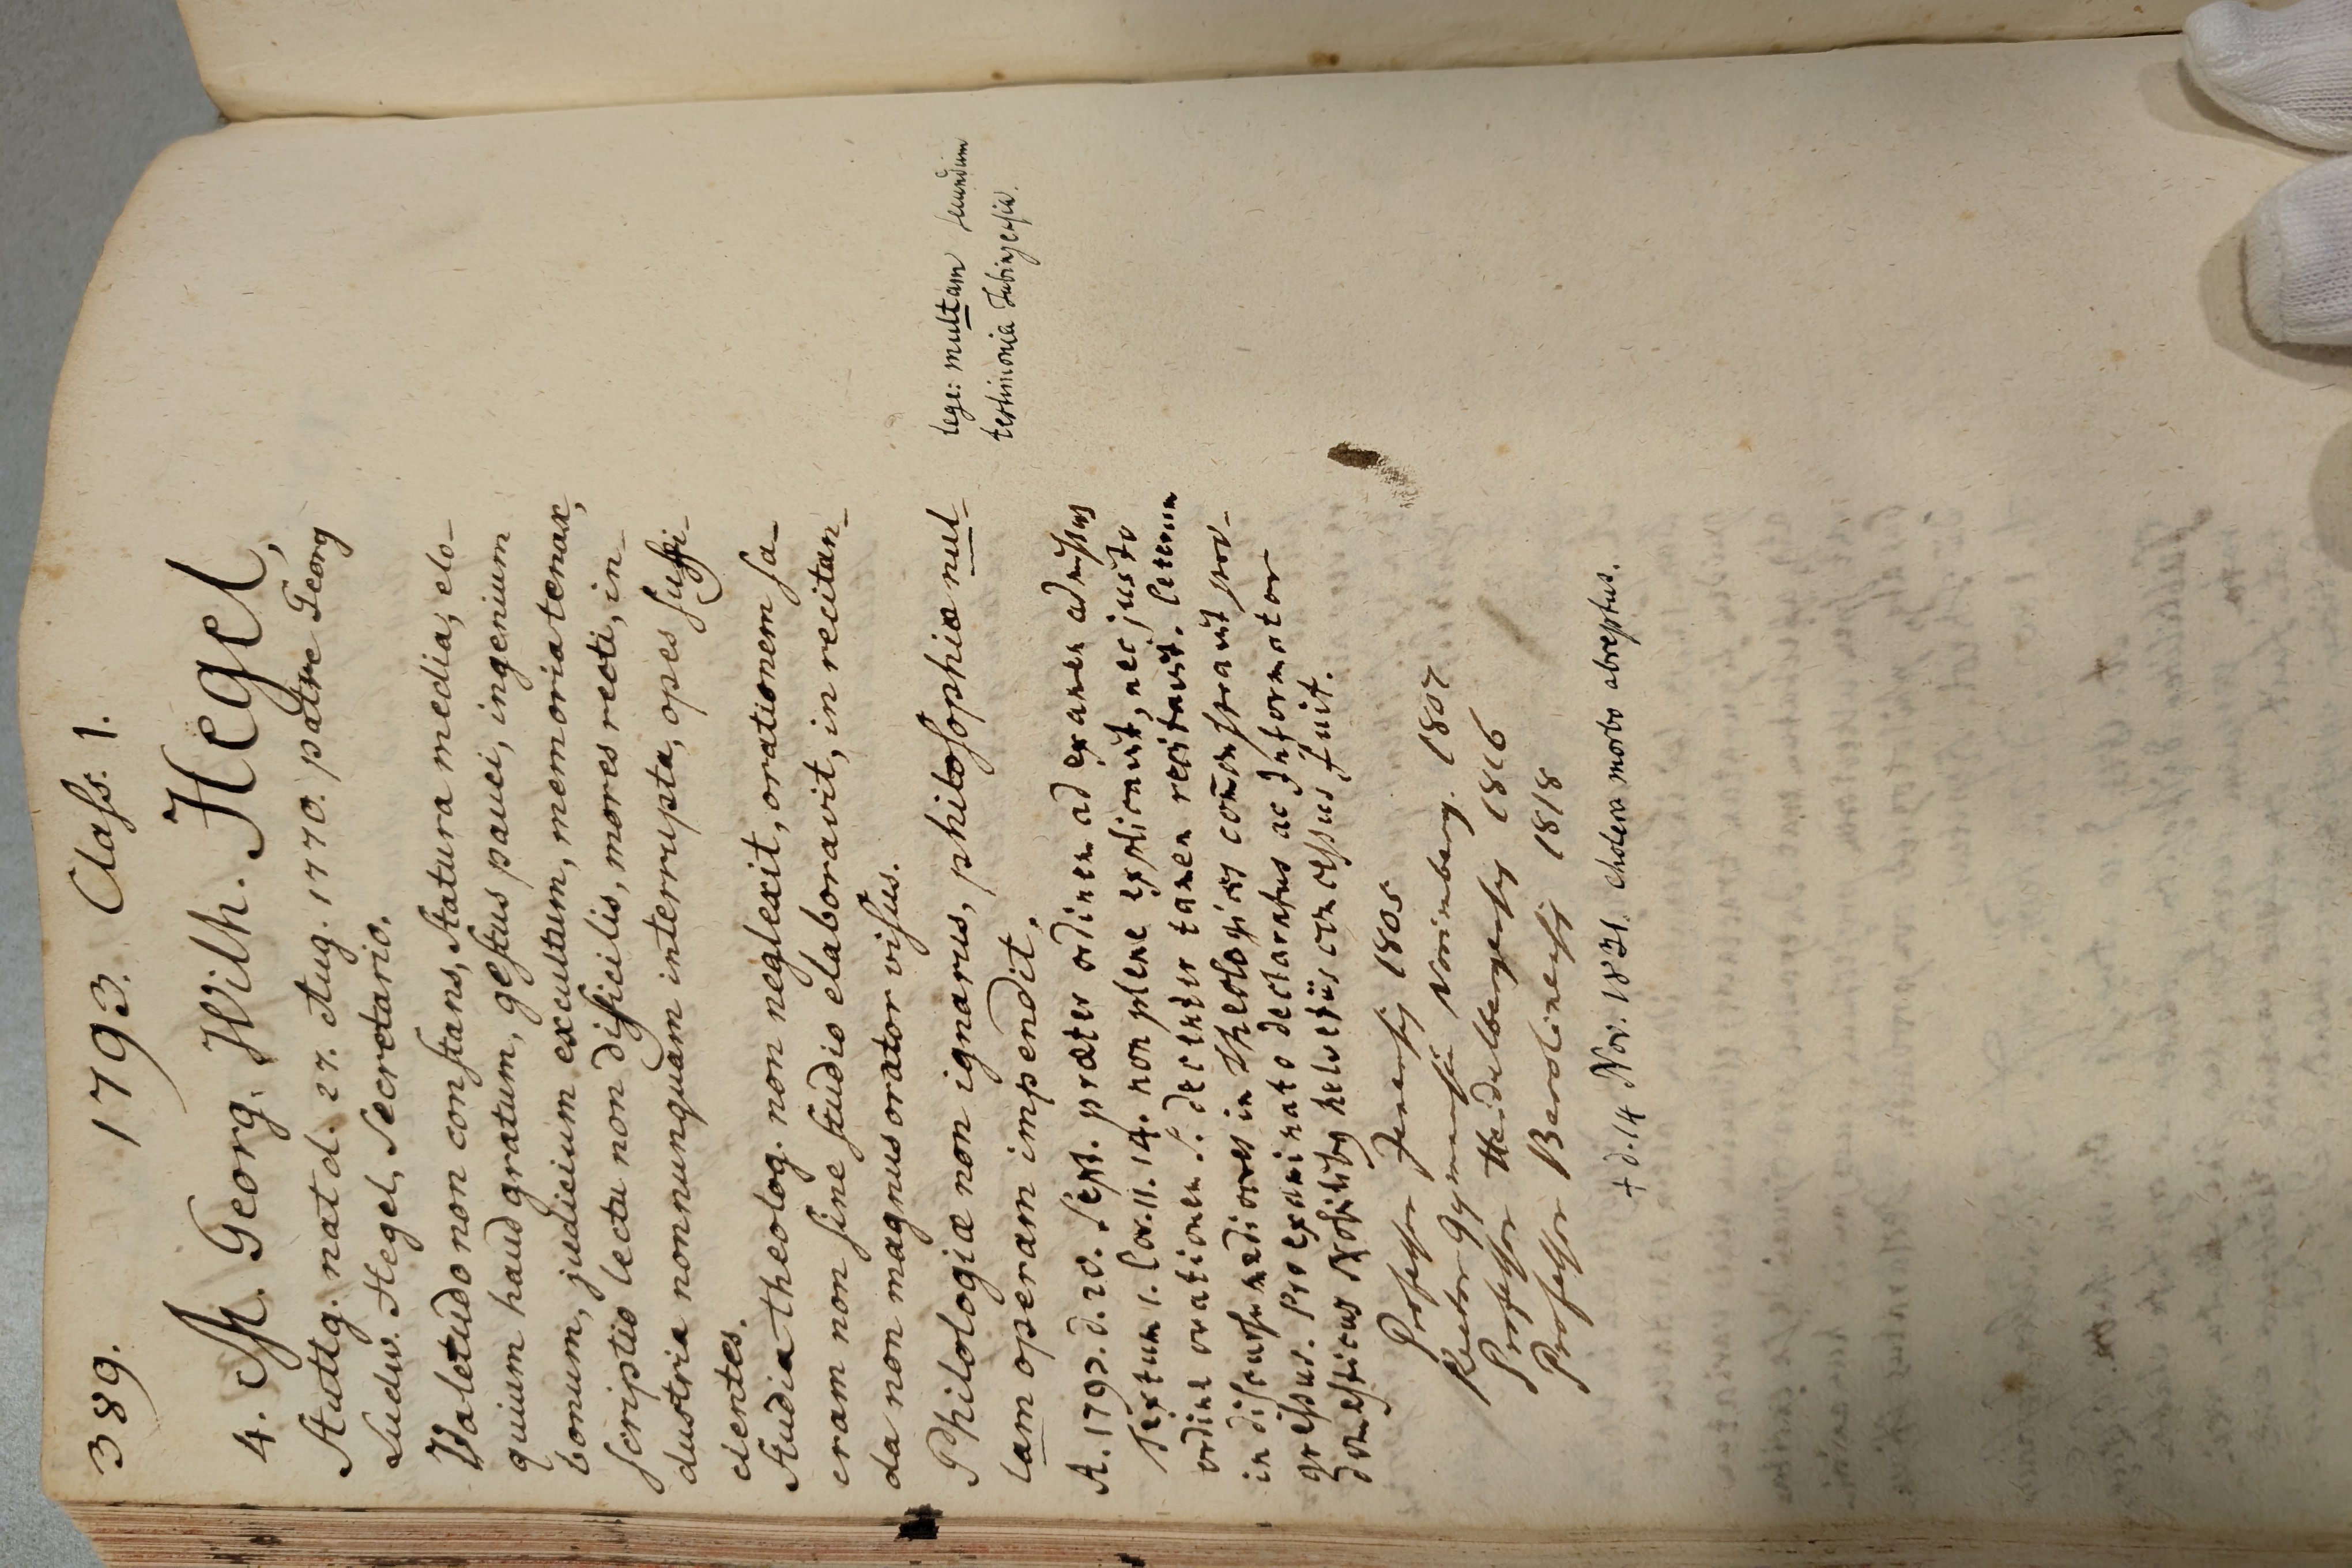 389. 1793. Class. 1.
4. M. Georg. Wilh. Hegel,
Stuttg. nat d. 27. Aug. 1770. patre Georg
Ludw. Hegel, Secretario.
Valetudo non constans, statura media, elo-
quium haud gratum, gestus pauci, ingenium
bonum, judicium excultum, memoria tenax,
scriptio lectu non difficilis, mores recti, in-
dustria nonnunquam interrupta, opes suffi-
cientes.
Studia theolog. non neglexit, orationem sa-
cram non sine studio elaboravit, in recitan-
da non magnus orator visus.
Philologiæ non ignarus, philosophiæ nul-
lam operam impendit.
lege: multam secundum
testimonia Tubingensia.
A. 1793. d. 20. Sept. præter ordinem ad examen admissus
Textum 1. Cor. II. 14. non plene explicavit, nec justo
ordine orationem s. decenter tamen recitavit. Ceterum
in discursu mediocres in Theologicis com̄onstravit pro-
gressus. Pro examinato declaratus ac Informator
domesticus Nobilibus helvetiis concessus fuit.
Professor Jenensis 1805
Rector Gymnasii Norimberg. 1807
Professor Heidelbergensis 1816
Professor Berolinensis 1818
+ d. 14 Nov. 1831. cholera morbo abreptus.